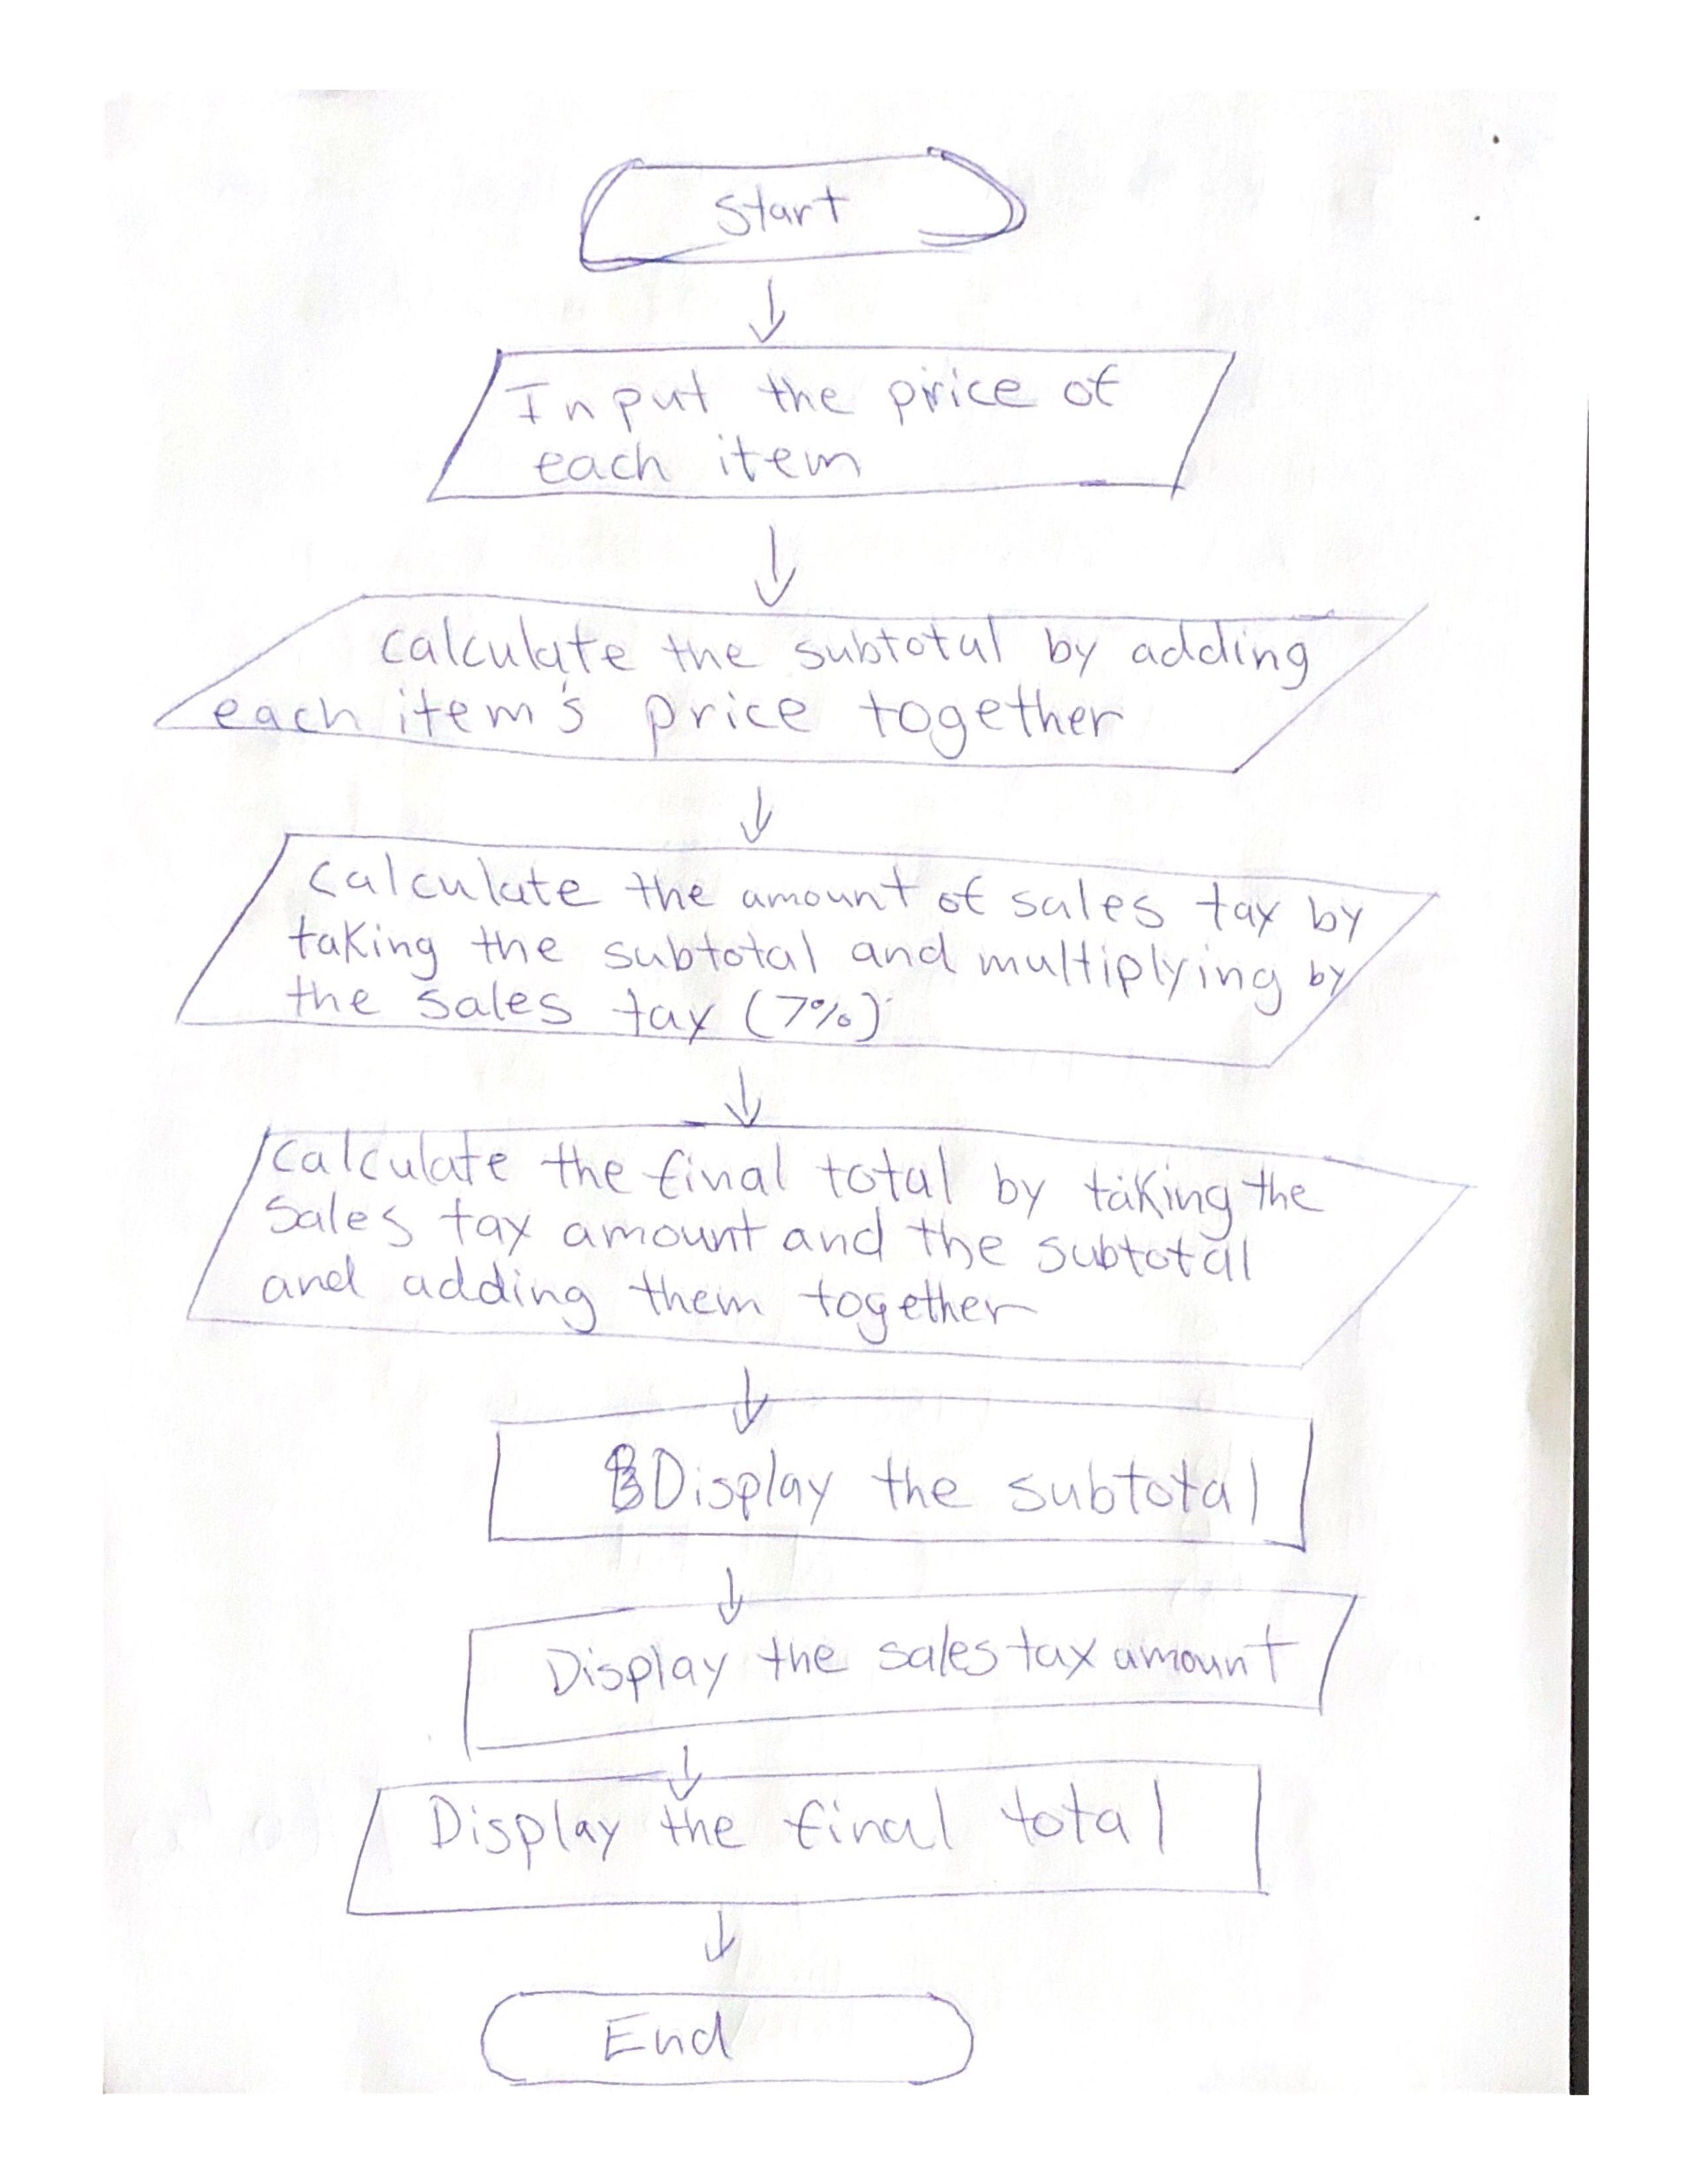 Start
Input the price of
each item
calculate the subtotal by adding
each item's price together
Calculate the amount of sales tax by
taking the subtotal and multiplying by
the sales tax (7%)
Calculate the final total by taking the
sales tax amount and the subtotal
and adding them together
Display the subtotal
Display the sales tax amount
Display the final total
End